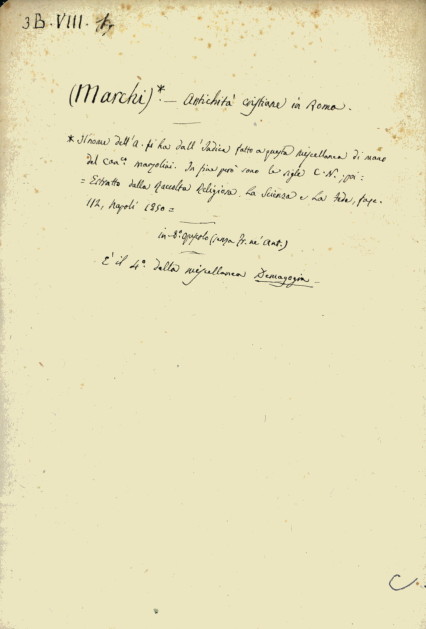 3B. VIII.
(Marchi)*. — Antichità cristiane in Roma.
* Il nome dell'A. si ha dall'Indice fatto a questa miscellanea di mano
del can.co Marzolini. In fine però sono le sigle C. N.; poi:
= Estratto dalla Raccolta Religiosa. La Scienza e La Fede, fasc.
112, Napoli 1850 =
in-8.° oppolo (senza fr. nè Ant.)
È il 4.° della miscellanea Demagogia.